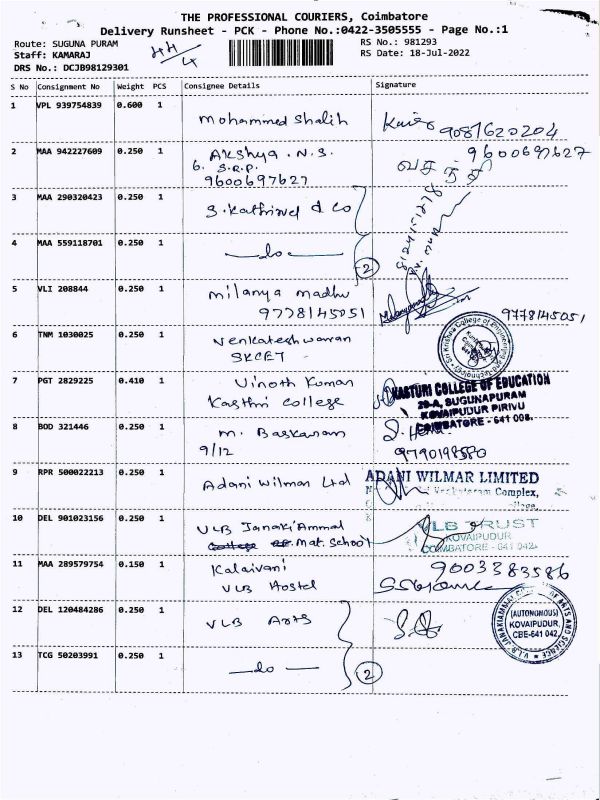 THE PROFESSIONAL COURIERS, Coimbatore
Delivery Runsheet - PCK - Phone No.:0422-3505555 - Page No.:1
Route: SUGUNA PURAM
RS No.: 981293
Staff: KAMARAJ
RS Date: 18-Jul-2022
DRS No.: DCJB98129301
S No Consignment No Weight PCS Consignee Details Signature
1 VPL 939754839 0.600 1
Mohammed Shalih 9081620204
2 MAA 942227609 0.250 1 Akshya . N.S. 9600697627
6. S.R.P. வசந்தி
9600697627
3 MAA 290320423 0.250 1
S. Kathirvel & Co
4 MAA 559118701 0.250 1
do
2
5 VLI 208844 0.250 1 Milanya Madhu
9778145051 9778145051
6 TNM 1030025 0.250 1 Venkateshwaran
SKCET
Sri Krishna College of Engineering and Technology
7 PGT 2829225 0.410 1 Vinoth Kumar
Kasthri College
KASTURI COLLEGE OF EDUCATION
29-A, SUGUNAPURAM
KOVAIPUDUR PIRIVU
COIMBATORE - 641 008.
8 BOD 321446 0.250 1 M. Baskaran
9/12 9790198580
9 RPR 500022213 0.250 1
Adani Wilmar Ltd
ADANI WILMAR LIMITED
Venkataram Complex,
10 DEL 901023156 0.250 1 VLB Janaki Ammal
Mat. School
VLB TRUST
KOVAIPUDUR
COIMBATORE - 641 042.
11 MAA 289579754 0.150 1 Kalaivani 9003383586
VLB Hostel
12 DEL 120484286 0.250 1 VLB Arts
(AUTONOMOUS)
KOVAIPUDUR,
CBE-641 042.
13 TCG 50203991 0.250 1
do
2